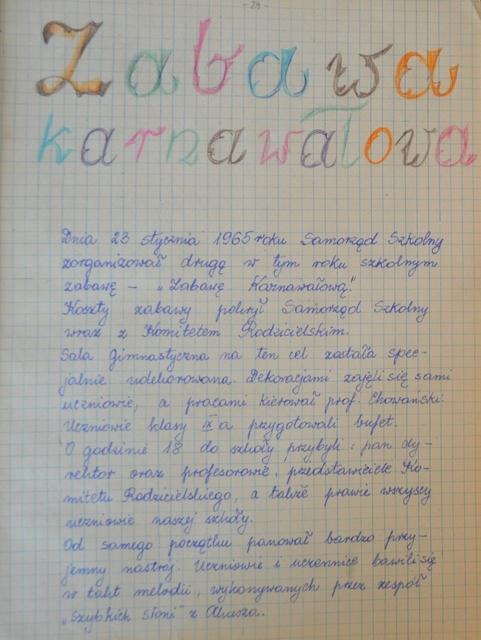 - 29 -
Zabawa
karnawałowa
Dnia 23 stycznia 1965 roku Samorząd Szkolny
zorganizował drugą w tym roku szkolnym
zabawę – „Zabawę Karnawałową".
Koszty zabawy pokrył Samorząd Szkolny
wraz z Komitetem Rodzicielskim.
Sala gimnastyczna na ten cel została spec-
jalnie udekorowana. Dekoracjami zajęli się sami
uczniowie, a pracami kierował prof. Chowański.
Uczniowie klasy IX a przygotowali bufet.
O godzinie 18 do szkoły przybyli: pan dy-
rektor oraz profesorowie, przedstawiciele Ko-
mitetu Rodzicielskiego, a także prawie wszyscy
uczniowie naszej szkoły.
Od samego początku panował bardzo przy-
jemny nastrój. Uczniowie i uczennice bawili się
w takt melodii, wykonywanych przez zespół
„Szybkich słoni" z